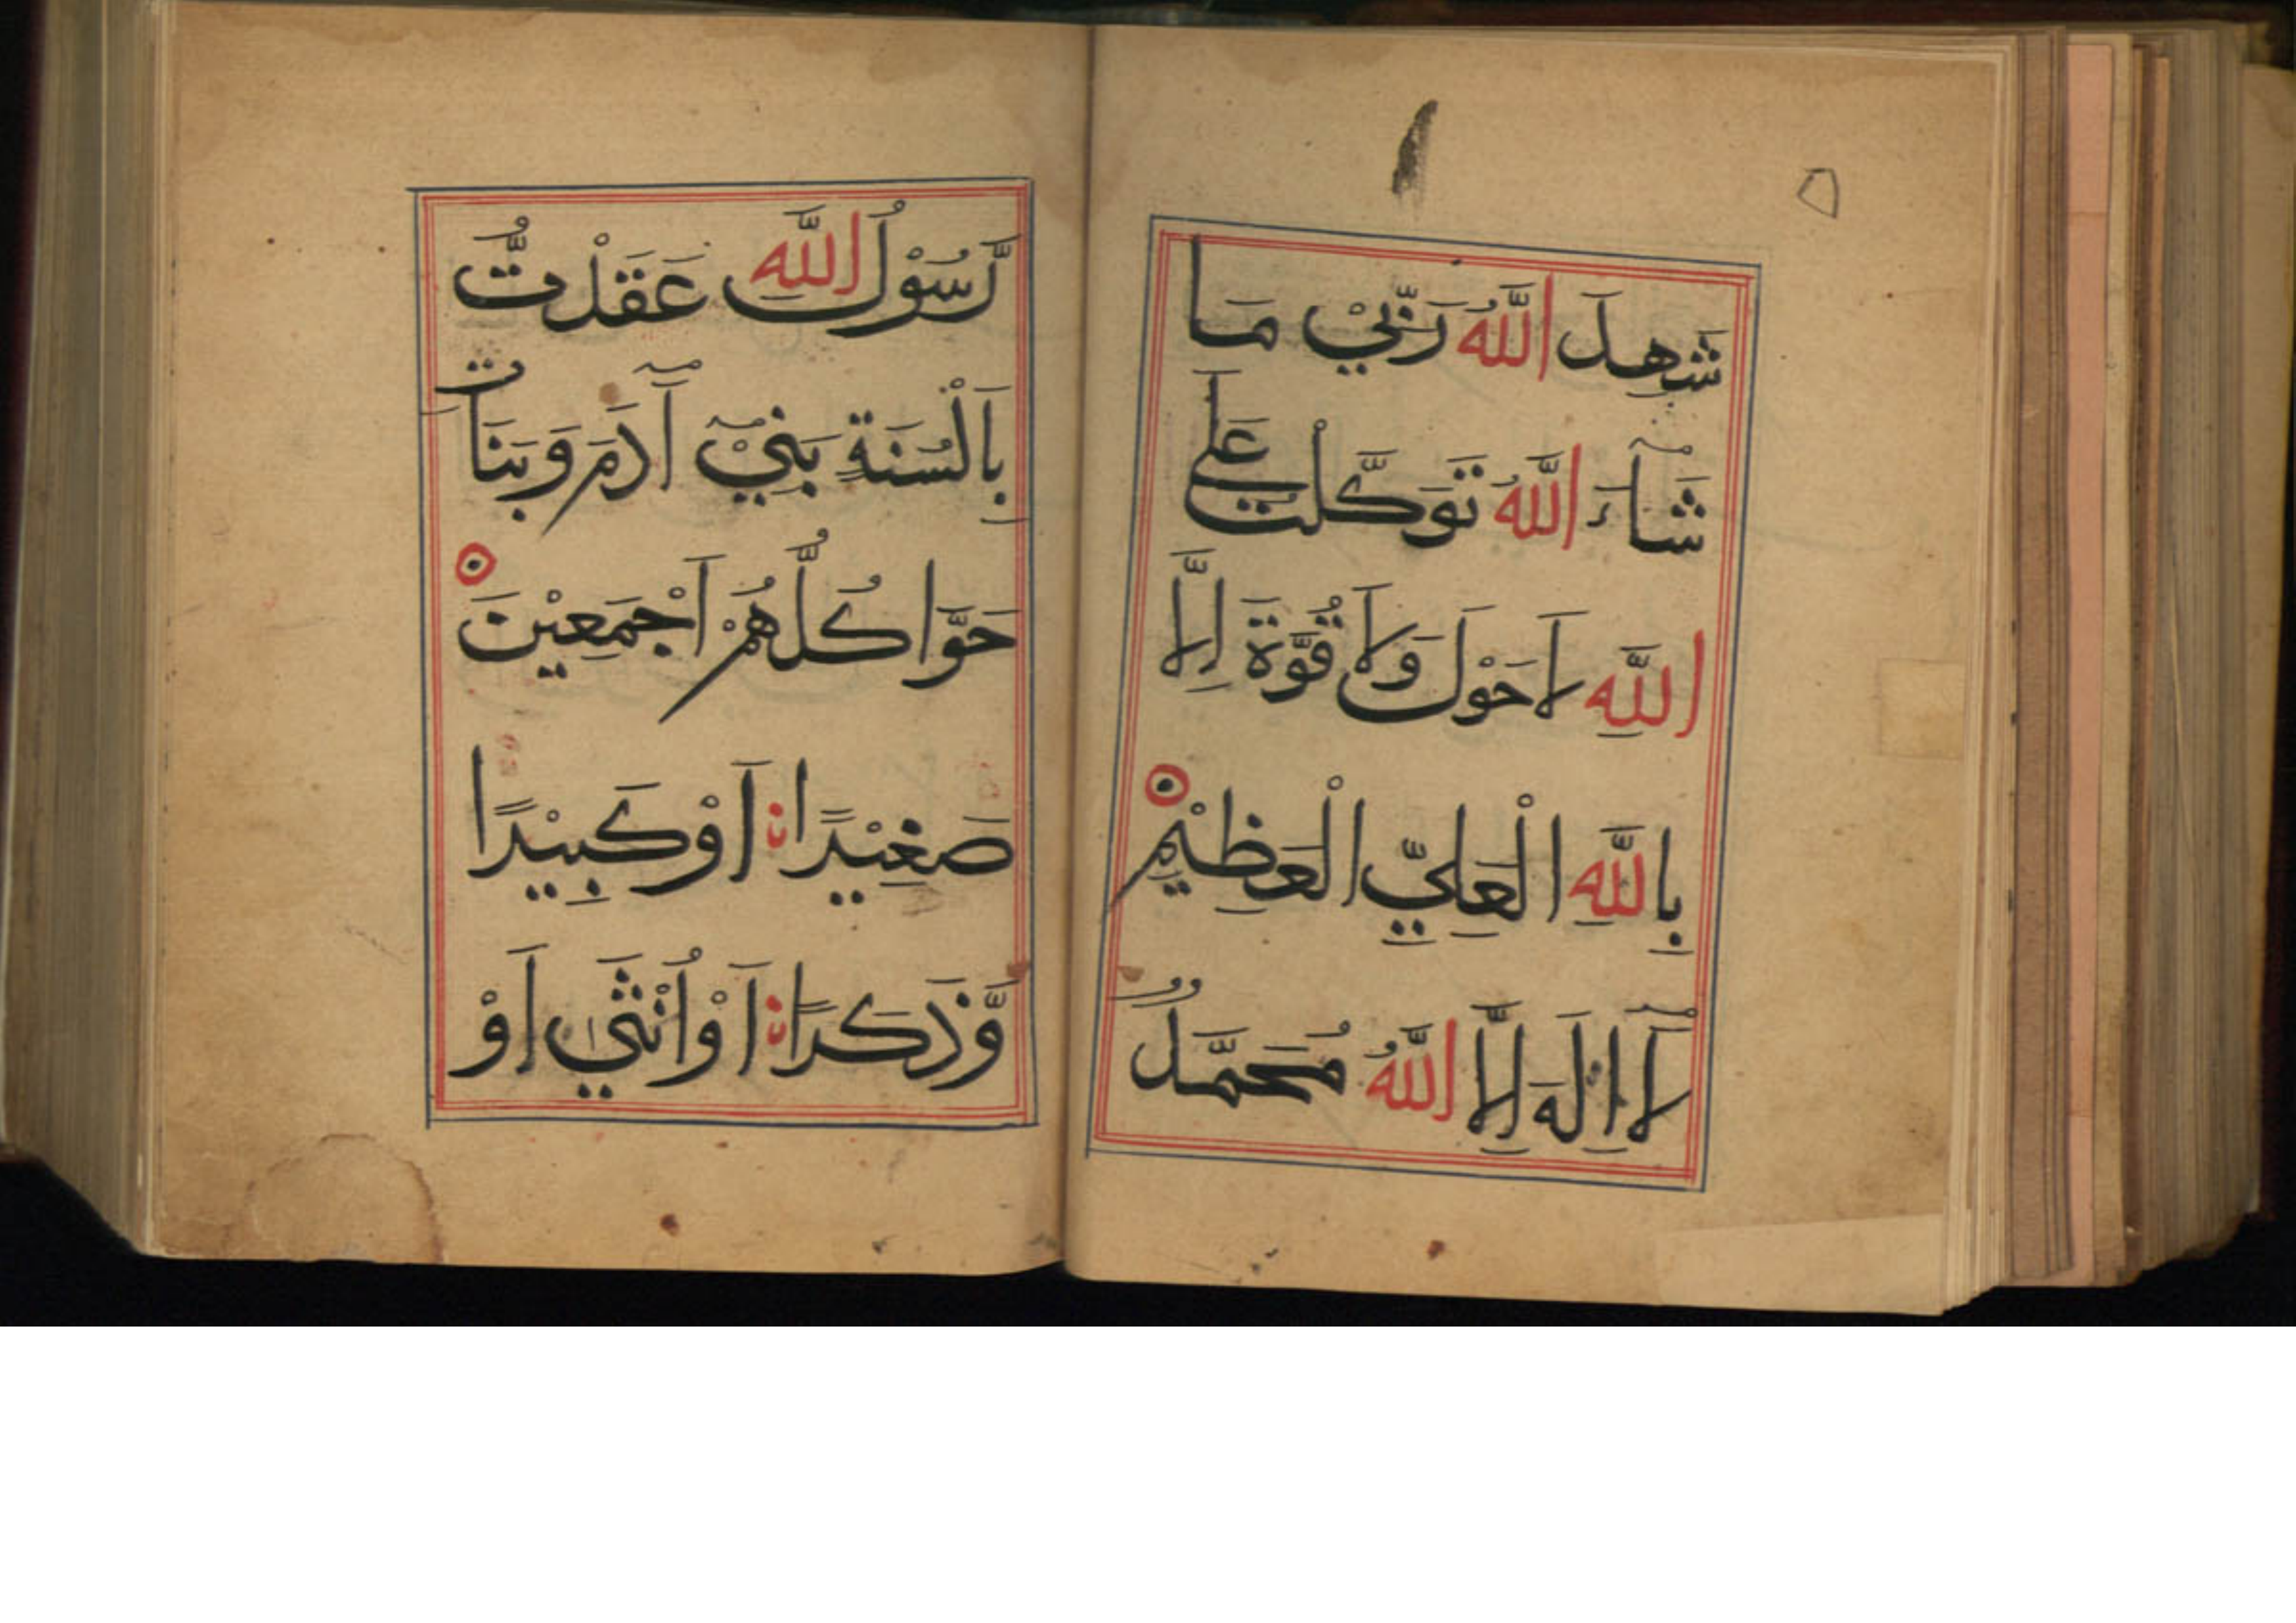 شَهِدَ اللّٰهُ رَبِّيْ مَا
شَآءَ اللّٰهُ تَوَكَّلْتُ عَلَى
اللّٰهِ لَاحَوْلَ وَلَا قُوَّةَ اِلَّا
بِاللّٰهِ الْعَلِيِّ الْعَظِيْمِ
لَآ اِلٰهَ اِلَّا اللّٰهُ مُحَمَّدٌ
رَّسُوْلُ اللّٰهِ عَقَدْتُّ
بِاَلْسُنَةِ بَنِيْٓ آدَمَ وَبَنَاتِ
حَوَّا كُلُّهُمْ اَجْمَعِيْنَ
صَغِيْرًا اَوْ كَبِيْرًا
وَّذَكَرًا اَوْ اُنْثٰى اَوْ